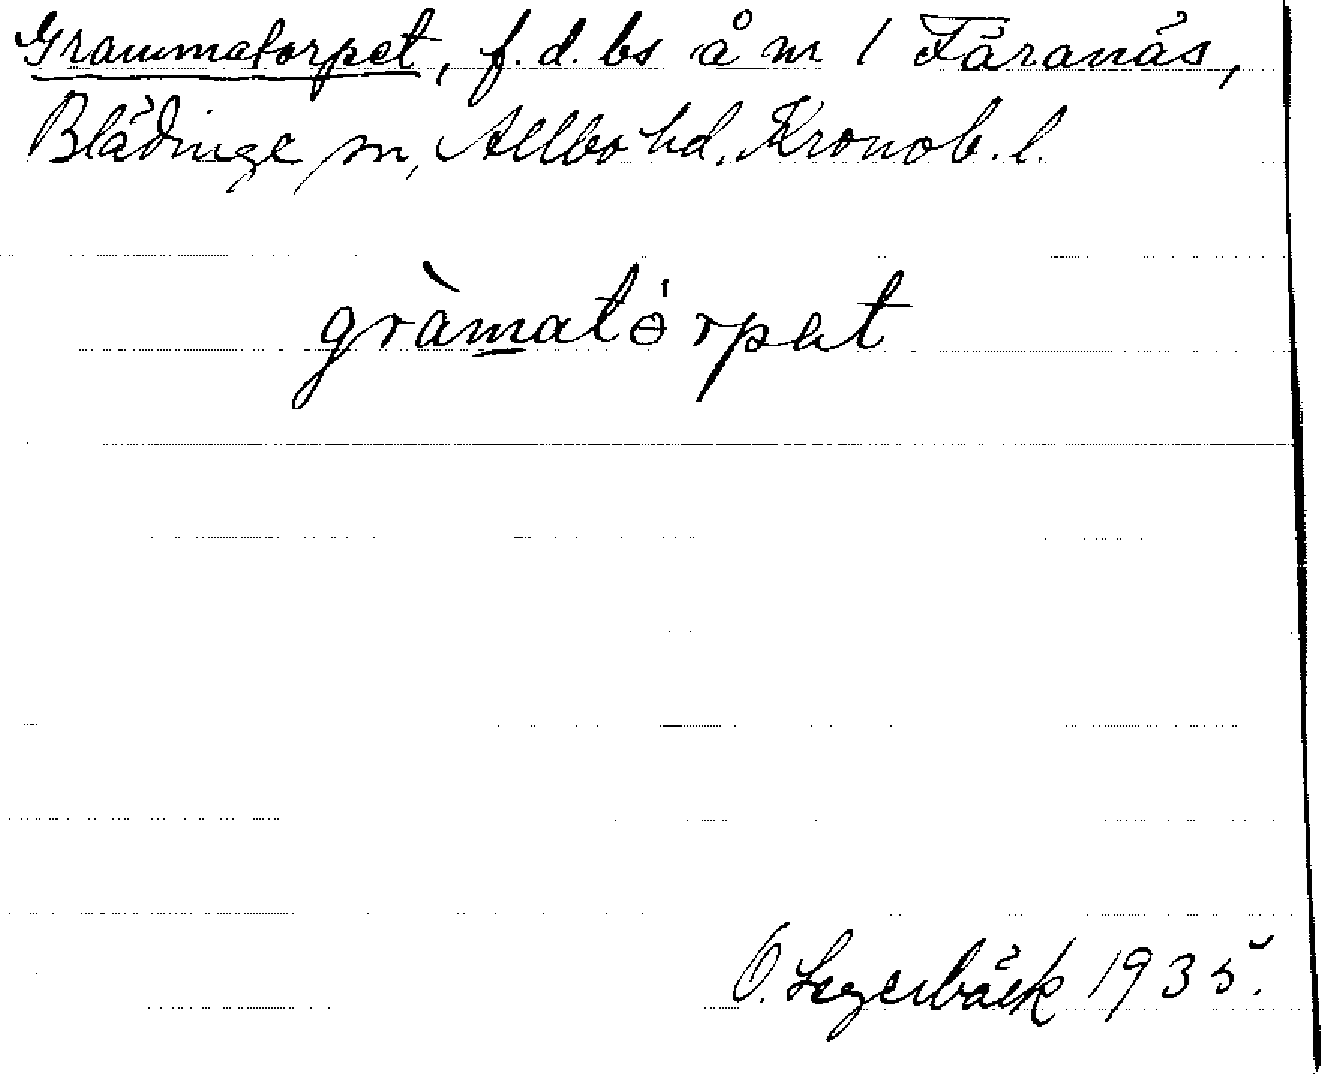 Grammatorpet, f.d. bs å m 1 Färanäs,
Blädinge sn, Allbo hd. Kronob. l.
gràmatɵ́rpət
O. Legerbäck 1935.